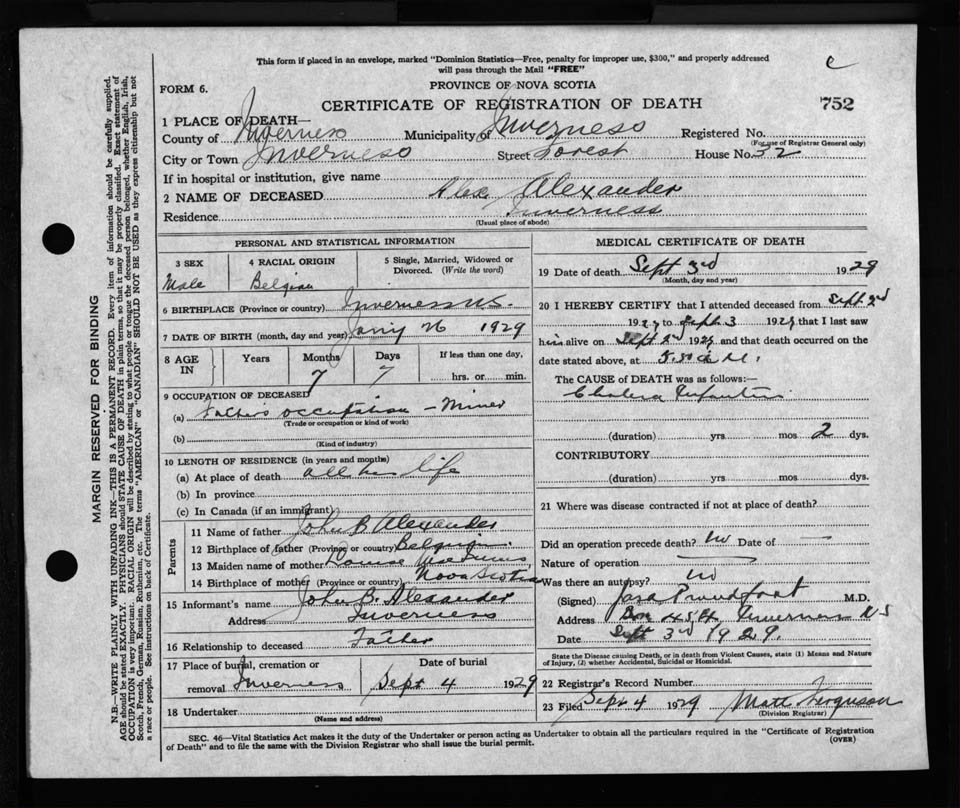 This form if placed in an envelope, marked "Dominion Statistics—Free, penalty for improper use, $300," and properly addressed
will pass through the Mail "FREE"
C
FORM 6.
PROVINCE OF NOVA SCOTIA
CERTIFICATE OF REGISTRATION OF DEATH
752
1 PLACE OF DEATH—
County of Inverness Municipality of Inverness Registered No.
(For use of Registrar General only)
City or Town Inverness Street Forest House No. 32
If in hospital or institution, give name
2 NAME OF DECEASED Alex Alexander
Residence Inverness
(Usual place of abode)
PERSONAL AND STATISTICAL INFORMATION
3 SEX 4 RACIAL ORIGIN 5 Single, Married, Widowed or
Divorced. (Write the word)
Male Belgian
6 BIRTHPLACE (Province or country) Inverness N.S.
7 DATE OF BIRTH (month, day and year) 26 1929
8 AGE IN Years Months Days If less than one day,
7 7 hrs. or min.
9 OCCUPATION OF DECEASED
(a) Father's occupation — Miner
(Trade or occupation or kind of work)
(b)
(Kind of industry)
10 LENGTH OF RESIDENCE (in years and months)
(a) At place of death all his life
(b) In province
(c) In Canada (if an immigrant)
Parents
11 Name of father John B Alexander
12 Birthplace of father (Province or country) Belgium
13 Maiden name of mother Louise
14 Birthplace of mother (Province or country) Nova Scotia
15 Informant's name John B. Alexander
Address Inverness
16 Relationship to deceased Father
17 Place of burial, cremation or Date of burial
removal Inverness Sept 4 1929
18 Undertaker
(Name and address)
MEDICAL CERTIFICATE OF DEATH
19 Date of death Sept 3rd 1929
(Month, day and year)
20 I HEREBY CERTIFY that I attended deceased from Sept 2d
1929 to Sept 3 1929 that I last saw
him alive on Sept 2d 1929 and that death occurred on the
date stated above, at M.
The CAUSE OF DEATH was as follows:—
Cholera Infantum
(duration) yrs. mos 2 dys.
CONTRIBUTORY
(duration) yrs. mos dys.
21 Where was disease contracted if not at place of death?
Did an operation precede death? no Date of —
Nature of operation —
Was there an autopsy? no
(Signed) Proudfoot M.D.
Address Box Inverness N S
Date Sept 3rd 1929.
State the Disease causing Death, or in death from Violent Causes, state (1) Means and Nature
of Injury, (2) whether Accidental, Suicidal or Homicidal.
22 Registrar's Record Number
23 Filed Sept 4 1929 Matt Ferguson
(Division Registrar)
SEC. 46—Vital Statistics Act makes it the duty of the Undertaker or person acting as Undertaker to obtain all the particulars required in the "Certificate of Registration
of Death" and to file the same with the Division Registrar who shall issue the burial permit.
(OVER)
MARGIN RESERVED FOR BINDING
N.B.—WRITE PLAINLY WITH UNFADING INK—THIS IS A PERMANENT RECORD. Every item of information should be carefully supplied.
AGE should be stated EXACTLY. PHYSICIANS should STATE CAUSE OF DEATH in plain terms, so that it may be properly classified. Exact statement of
OCCUPATION is very important. RACIAL ORIGIN will be described by stating to what people or tongue the deceased person belonged, whether English, Irish,
Scotch, French, German, Russian, Ruthenian, etc. The terms "AMERICAN" or "CANADIAN" SHOULD NOT BE USED as they express citizenship but not
a race or people. See instructions on back of Certificate.